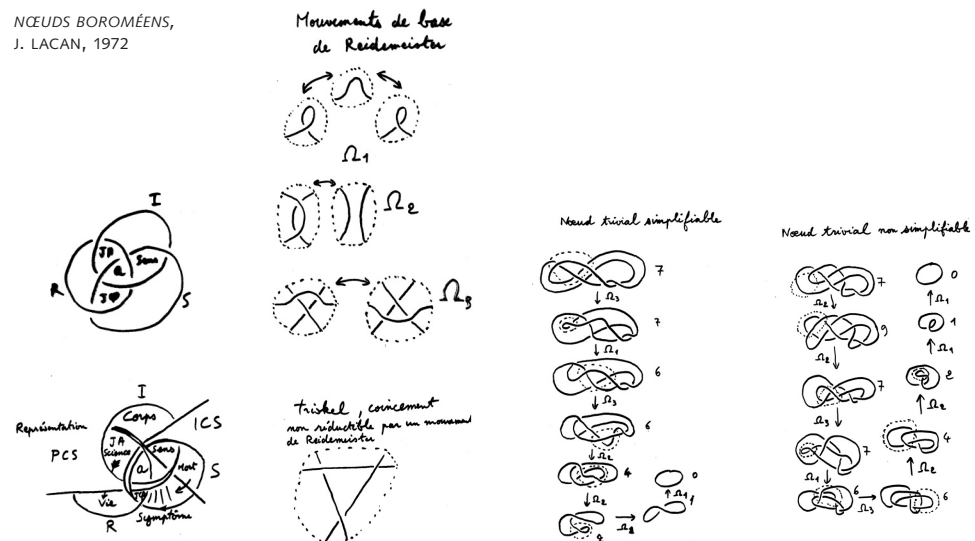 NŒUDS BOROMÉENS,
J. LACAN, 1972
I
JA
a
Sens
JΦ
R
S
Représentation
PCS
I
Corps
ICS
JA
Science
Sens
a
Mort
S
Vie
R
Symptôme
Mouvements de base
de Reidemeister
Ω1
Ω2
Ω3
triskel, coincement
non réductible par un mouvement
de Reidemeister
Nœud trivial simplifiable
7
Ω3
7
Ω1
6
Ω3
6
Ω2
4
Ω2
2
Ω1
Ω1
0
Nœud trivial non simplifiable
7
Ω2
9
Ω2
7
Ω3
7
Ω1
6
Ω3
6
Ω2
4
Ω2
2
Ω1
1
Ω1
0